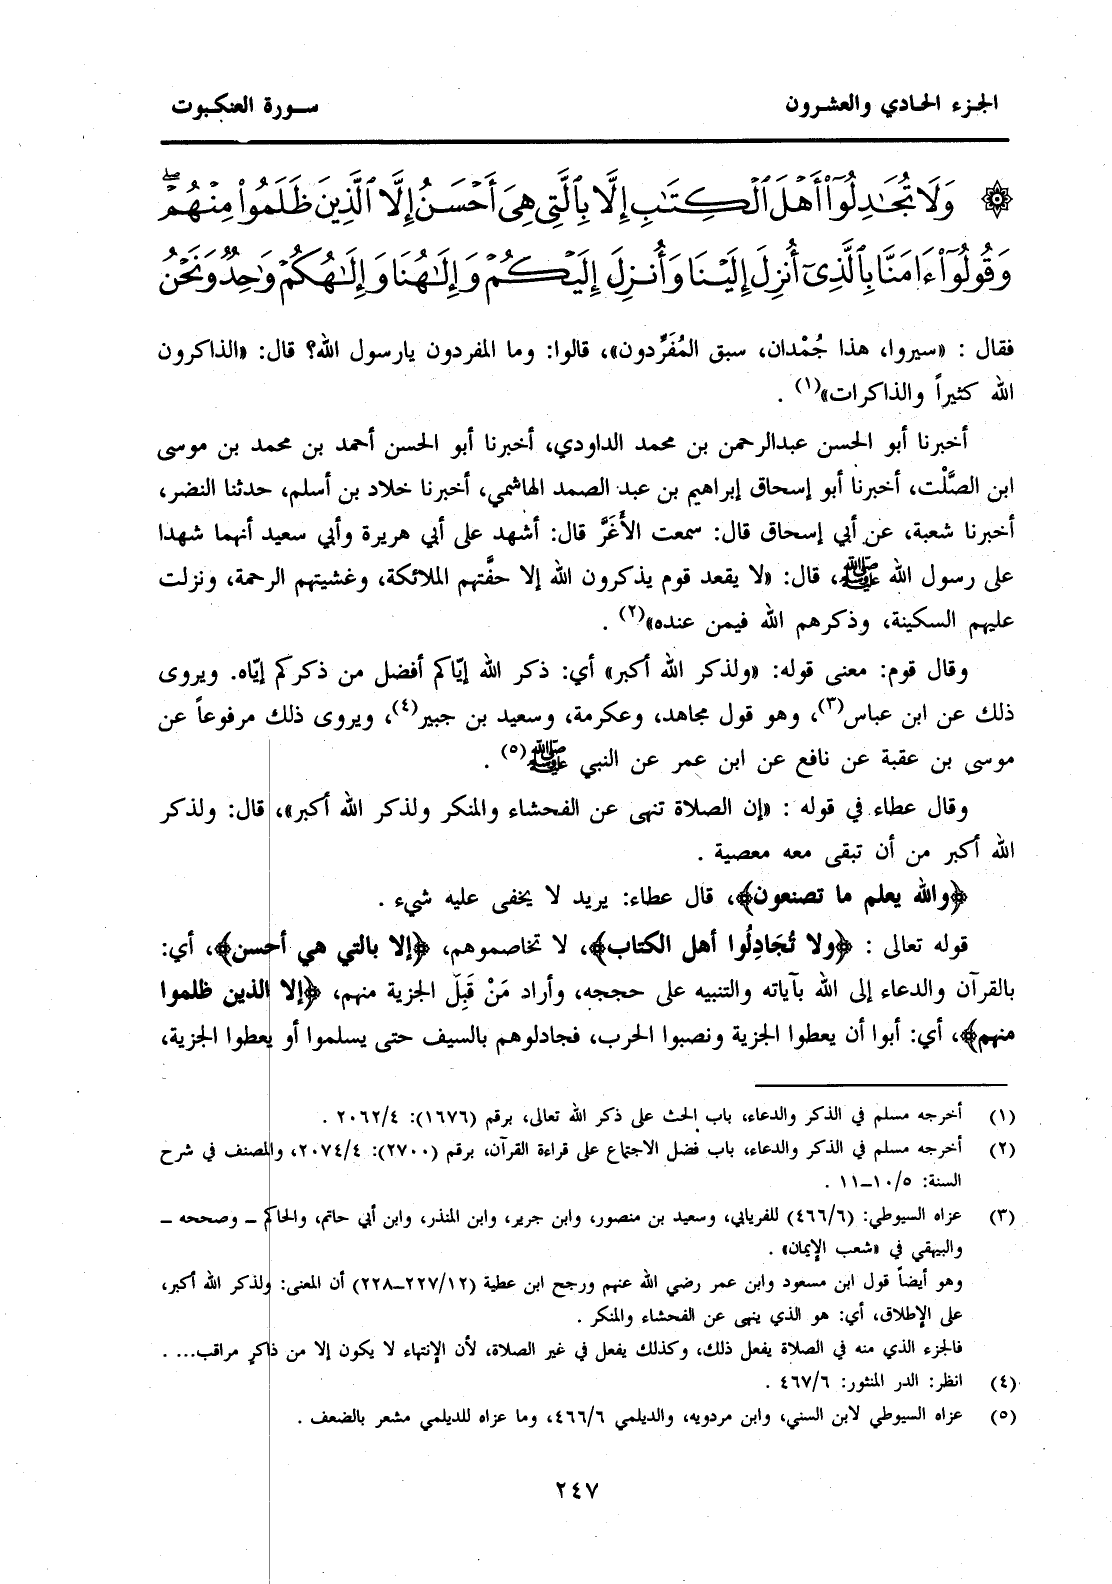 الجزء الحادي والعشرون
سورة العنكبوت
۞ وَلَا تُجَٰدِلُوٓا۟ أَهْلَ ٱلْكِتَٰبِ إِلَّا بِٱلَّتِى هِىَ أَحْسَنُ إِلَّا ٱلَّذِينَ ظَلَمُوا۟ مِنْهُمْ ۖ
وَقُولُوٓا۟ ءَامَنَّا بِٱلَّذِىٓ أُنزِلَ إِلَيْنَا وَأُنزِلَ إِلَيْكُمْ وَإِلَٰهُنَا وَإِلَٰهُكُمْ وَٰحِدٌ وَنَحْنُ
فقال : «سيروا، هذا جُمْدان، سبق المُفَرِّدون»، قالوا: وما المفردون يارسول الله؟ قال: «الذاكرون
الله كثيراً والذاكرات»(١) .
أخبرنا أبو الحسن عبدالرحمن بن محمد الداودي، أخبرنا أبو الحسن أحمد بن محمد بن موسى
ابن الصَّلْت، أخبرنا أبو إسحاق إبراهيم بن عبد الصمد الهاشمي، أخبرنا خلاد بن أسلم، حدثنا النضر،
أخبرنا شعبة، عن أبي إسحاق قال: سمعت الأَغَرَّ قال: أشهد على أبي هريرة وأبي سعيد أنهما شهدا
على رسول الله ﷺ، قال: «لا يقعد قوم يذكرون الله إلا حفَّتهم الملائكة، وغشيتهم الرحمة، ونزلت
عليهم السكينة، وذكرهم الله فيمن عنده»(٢) .
وقال قوم: معنى قوله: «ولذكر الله أكبر» أي: ذكر الله إيّاكم أفضل من ذكركم إيّاه. ويروى
ذلك عن ابن عباس(٣)، وهو قول مجاهد، وعكرمة، وسعيد بن جبير(٤)، ويروى ذلك مرفوعاً عن
موسى بن عقبة عن نافع عن ابن عمر عن النبي ﷺ(٥) .
وقال عطاء في قوله : «إن الصلاة تنهى عن الفحشاء والمنكر ولذكر الله أكبر»، قال: ولذكر
الله أكبر من أن تبقى معه معصية .
﴿والله يعلم ما تصنعون﴾، قال عطاء: يريد لا يخفى عليه شيء .
قوله تعالى : ﴿ولا تُجَادِلُوا أهل الكتاب﴾، لا تخاصموهم، ﴿إلا بالتي هي أحسن﴾، أي:
بالقرآن والدعاء إلى الله بآياته والتنبيه على حججه، وأراد مَنْ قَبِلَ الجزية منهم، ﴿إلا الذين ظلموا
منهم﴾، أي: أبوا أن يعطوا الجزية ونصبوا الحرب، فجادلوهم بالسيف حتى يسلموا أو يعطوا الجزية،
(١) أخرجه مسلم في الذكر والدعاء، باب الحث على ذكر الله تعالى، برقم (١٦٧٦): ٢٠٦٢/٤ .
(٢) أخرجه مسلم في الذكر والدعاء، باب فضل الاجتماع على قراءة القرآن، برقم (٢٧٠٠): ٢٠٧٤/٤، والمصنف في شرح
السنة: ١٠/٥ــ١١ .
(٣) عزاه السيوطي: (٤٦٦/٦) للفريابي، وسعيد بن منصور، وابن جرير، وابن المنذر، وابن أبي حاتم، والحاكم ــ وصححه ــ
والبيهقي في «شعب الإيمان» .
وهو أيضاً قول ابن مسعود وابن عمر رضي الله عنهم ورجح ابن عطية (٢٢٧/١٢ــ٢٢٨) أن المعنى: ولذكر الله أكبر،
على الإطلاق، أي: هو الذي ينهى عن الفحشاء والمنكر .
فالجزء الذي منه في الصلاة يفعل ذلك، وكذلك يفعل في غير الصلاة، لأن الإنتهاء لا يكون إلا من ذاكر مراقب... .
(٤) انظر: الدر المنثور: ٤٦٧/٦ .
(٥) عزاه السيوطي لابن السني، وابن مردويه، والديلمي ٤٦٦/٦، وما عزاه للديلمي مشعر بالضعف .
٢٤٧